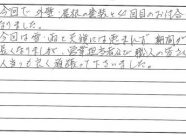 今回で外壁・屋根の塗装と4回目のお付合
なりました。
今回は雪・雨と天候には恵まれず期間が
長くなりましたが、営業担当者及び職人の皆さん
人当りも良く頑張って下さいました。